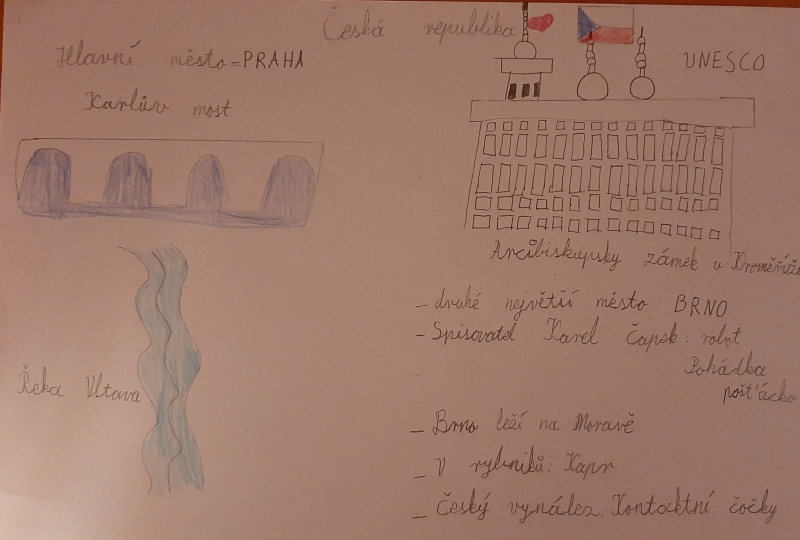 Česká republika
Hlavní město = PRAHA
Karlův most
Řeka Vltava
UNESCO
Arcibiskupsky zámek v Kroměříže
- druhé největší město BRNO
- Spisovatel Karel Čapek: robot
Pohádka
pošťácko
- Brno leží na Moravě
- V rybníků: Kapr
- Český vynález: Kontaktní čočky